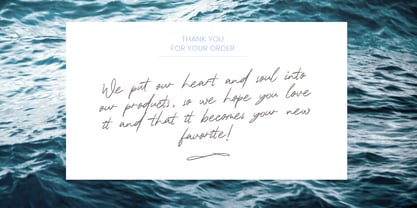 THANK YOU
FOR YOUR ORDER
We put our heart and soul into
our products, so we hope you love
it and that it becomes your new
favorite!